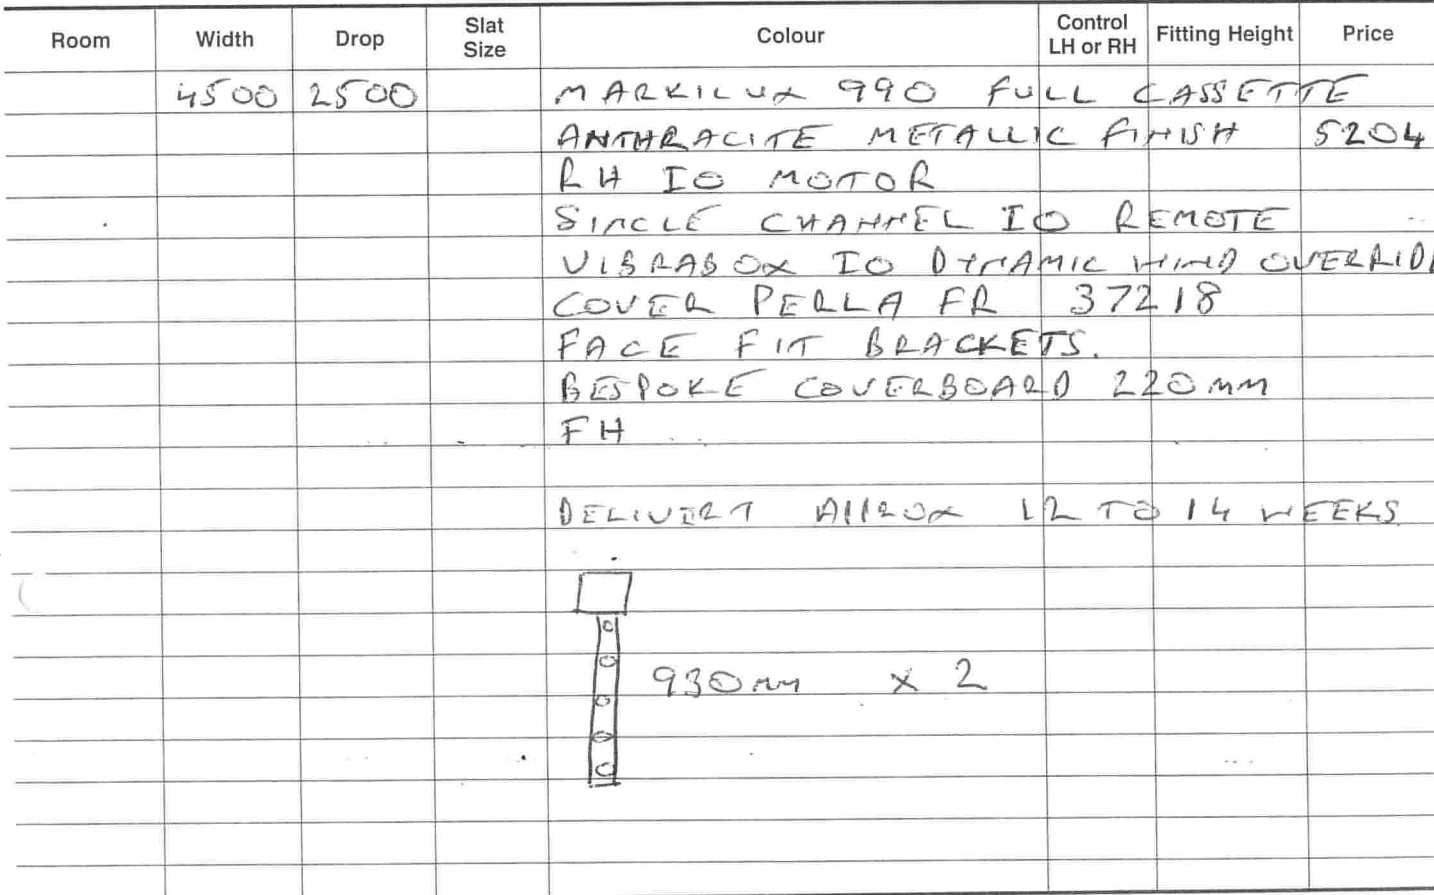 Room Width Drop Slat Size Colour Control LH or RH Fitting Height Price
4500 2500 MARKILUX 990 FULL CASSETTE
ANTHRACITE METALLIC FINISH 5204
RH IO MOTOR
SINGLE CHANNEL IO REMOTE
VIBRABOX IO DYNAMIC WIND OVERRID
COVER PERLA FR 37218
FACE FIT BRACKETS.
BESPOKE COVERBOARD 220mm
FH
DELIVERY APPROX 12 TO 14 WEEKS
930mm X 2